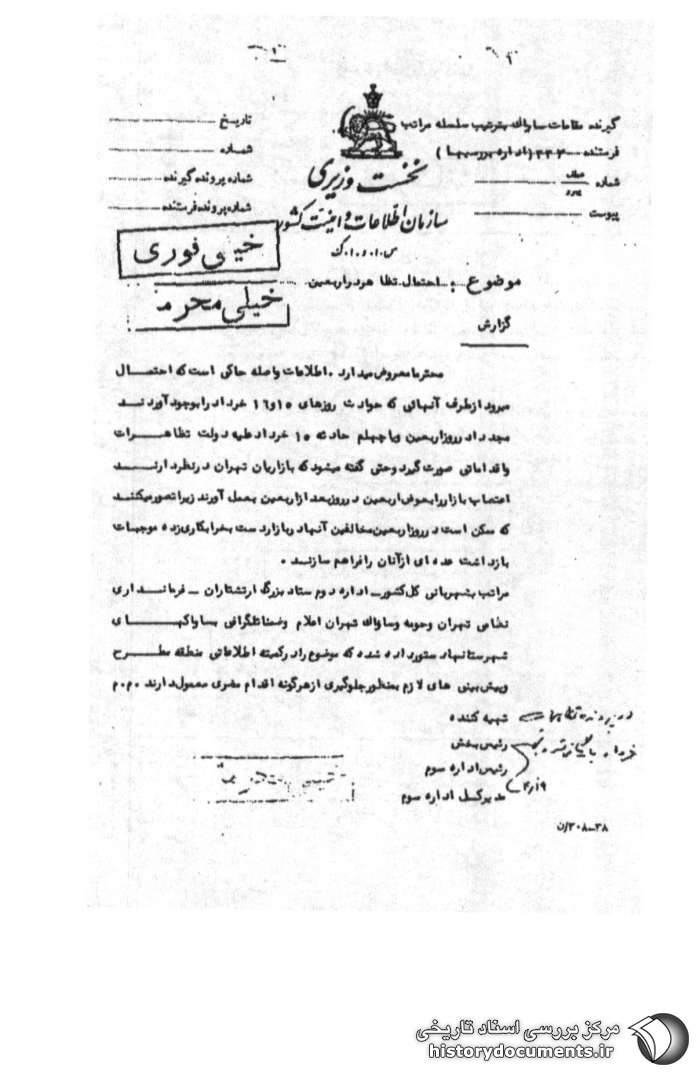 گیرنده مقامات ساواک بترتیب سلسله مراتب
فرستنده ۳۳۳ (اداره بررسیها)
شماره
پیوست
نخست وزیری
سازمان اطلاعات و امنیت کشور
س.ا.و.ا.ک
تاریخ
شماره
شماره پرونده گیرنده
شماره پرونده فرستنده
خیلی فوری
خیلی محرمـ
موضوع : احتمال تظاهر در اربعین
گزارش
محترما معروض میدارد . اطلاعات واصله حاکی است که احتمـــال
میرود از طرف آنهائی که حوادث روزهای ۱۵ و ۱۶ خرداد را بوجود آوردنـــد
مجددا در روز اربعین و یا چهلم حادثه ۱۵ خرداد علیه دولت تظاهـــرات
و اقداماتی صورت گیرد و حتی گفته میشود که بازاریان تهران در نظر دارنـــد
اعتصاب بازار را بعوض اربعین در روز بعد از اربعین بعمل آورند زیرا تصور میکننـد
که ممکن است در روز اربعین مخالفین آنها در بازار دست بخرابکاری زده موجبات
بازداشت عده ای از آنان را فراهم سازنــد .
مراتب بشهربانی کل کشور ـ اداره دوم ستاد بزرگ ارتشتاران ـ فرمانـــداری
نظامی تهران و حومه و ساواک تهران اعلام و ضمنا تلگرافی بساواکهـــای
شهرستانها دستور داده شده که موضوع را در کمیته اطلاعاتی منطقه مطـــرح
و پیش بینی های لازم بمنظور جلوگیری از هرگونه اقدام مضری معمول دارند .م.م
تهیه کننده
رئیس بخش
رئیس اداره سوم
مدیر کل اداره سوم
۳۸-۳۰۸/ن
مرکز بررسی اسناد تاریخی
historydocuments.ir